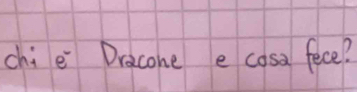 chi è Dracone e cosa fece?